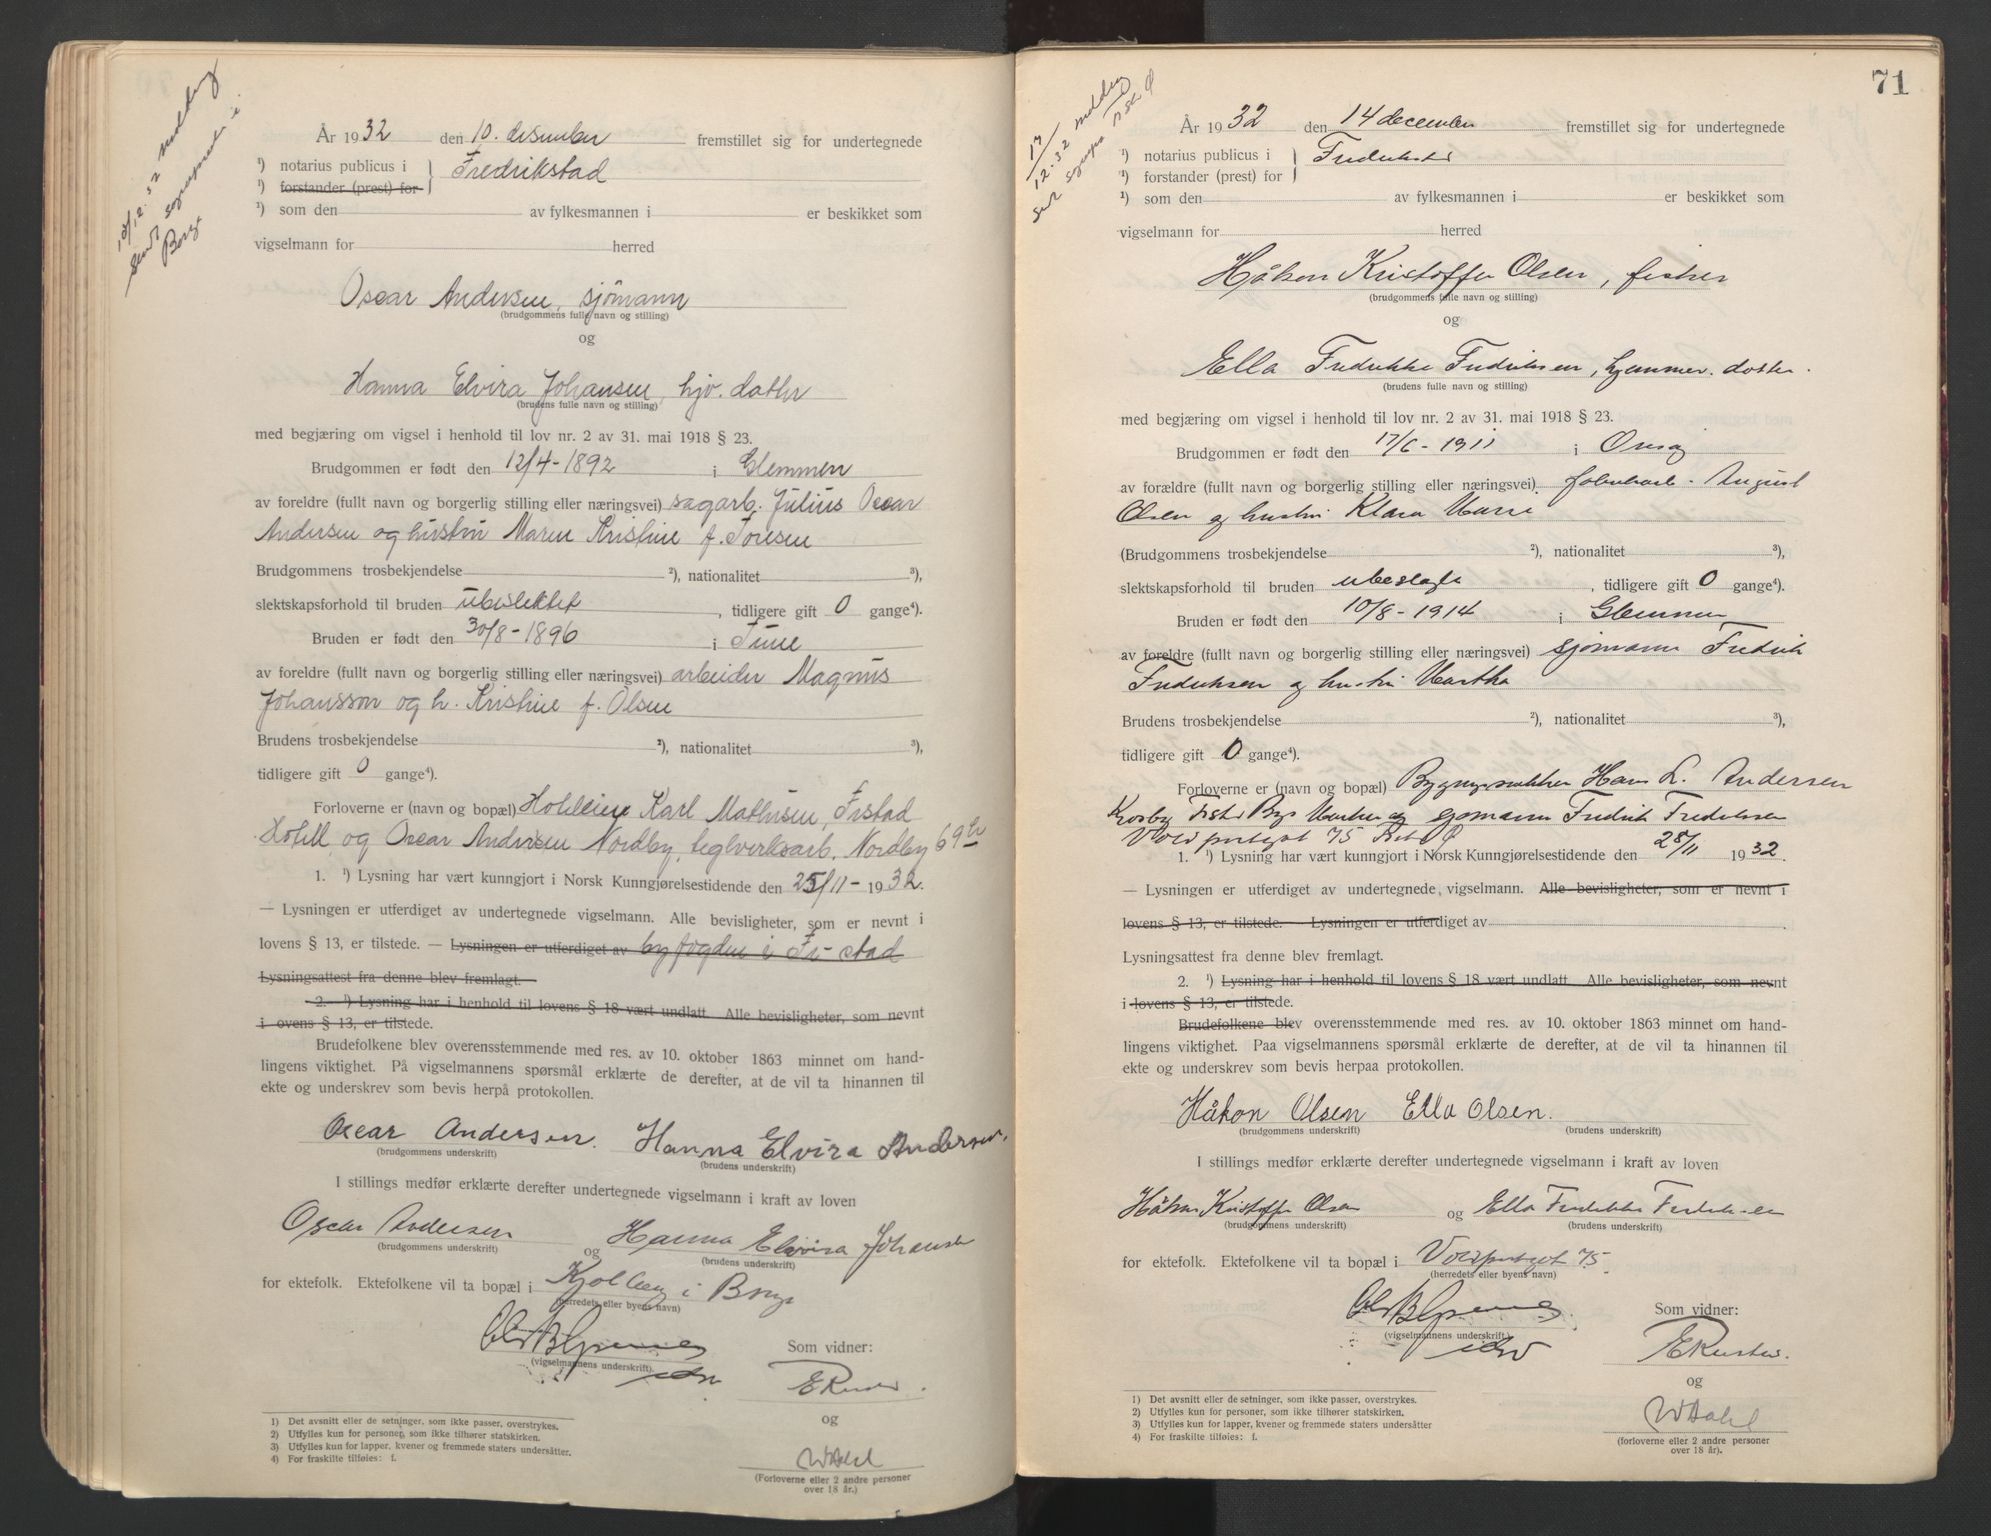 13/12.32 melding
sendt sogneprest i
Borge
År 1932 den 10. desember fremstillet sig for undertegnede
¹) notarius publicus i } Fredrikstad
¹) forstander (prest) for
¹) som den av fylkesmannen i er beskikket som
vigselmann for herred
Oscar Andersen, sjömann
(brudgommens fulle navn og stilling)
og
Hanna Elvira Johansen, hjv. datter
(brudens fulle navn og stilling)
med begjæring om vigsel i henhold til lov nr. 2 av 31. mai 1918 § 23.
Brudgommen er født den 12/4-1892 i Glemmen
av foreldre (fullt navn og borgerlig stilling eller næringsvei) sagarb. Julius Oscar
Andersen og hustru Maren Kristine f. Toresen
Brudgommens trosbekjendelse ²), nationalitet ³),
slektskapsforhold til bruden ubeslektet, tidligere gift 0 gange⁴).
Bruden er født den 30/8-1896 i Tune
av foreldre (fullt navn og borgerlig stilling eller næringsvei) arbeider Magnus
Johansson og h. Kristine f. Olsen
Brudens trosbekjendelse ²), nationalitet ³),
tidligere gift 0 gange⁴).
Forloverne er (navn og bopæl) Karl Mathisen, Frstad
Hotell og Oscar Andersen Nordby, teglverksarb. Nordby
1. ¹) Lysning har vært kunngjort i Norsk Kunngjørelsestidende den 25/11-1932.
— Lysningen er utferdiget av undertegnede vigselmann. Alle bevisligheter, som er nevnt i
lovens § 13, er tilstede. — Lysningen er utferdiget av byfogden i Fr-stad
Lysningsattest fra denne blev fremlagt.
2. ¹) Lysning har i henhold til lovens § 18 vært undlatt. Alle bevisligheter, som nevnt
i ovens § 13, er tilstede.
Brudefolkene blev overensstemmende med res. av 10. oktober 1863 minnet om hand-
lingens viktighet. På vigselmannens spørsmål erklærte de derefter, at de vil ta hinannen til
ekte og underskrev som bevis herpå protokollen.
Oscar Andersen. Hanna Elvira Andersen.
(brudgommens underskrift) (brudens underskrift)
I stillings medfør erklærte derefter undertegnede vigselmann i kraft av loven
Oscar Andersen og Hanna Elvira Johansen
(brudgommens underskrift) (brudens underskrift)
for ektefolk. Ektefolkene vil ta bopæl i Kjølberg i Borge
(herredets eller byens navn)
(vigselmannens underskrift).
Som vidner:
og
W Dahl
(Forloverne eller 2 andre personer
over 18 år.)
1) Det avsnitt eller de setninger, som ikke passer, overstrykes.
2) Utfylles kun for personer, som ikke tilhører statskirken.
3) Utfylles kun for lapper, kvener og fremmede staters undersåtter.
4) For fraskilte tilføies: f.
71
17/12.32 melding
sendt sogneprest
År 1932 den 14 december fremstillet sig for undertegnede
¹) notarius publicus i } Fredrikstad
¹) forstander (prest) for
¹) som den av fylkesmannen i er beskikket som
vigselmann for herred
Håkon Kristoffer Olsen, fisker
(brudgommens fulle navn og stilling)
og
Ella Fredrikke Fredriksen, hjemmev. datter.
(brudens fulle navn og stilling)
med begjæring om vigsel i henhold til lov nr. 2 av 31. mai 1918 § 23.
Brudgommen er født den 17/6-1911 i Onsøy
av forældre (fullt navn og borgerlig stilling eller næringsvei). August
Olsen og hustru Klara Marie
(Brudgommens trosbekjendelse ²), nationalitet ³),
slektskapsforhold til bruden ubeslægte, tidligere gift 0 gange⁴).
Bruden er født den 10/8-1914 i Glemmen
av foreldre (fullt navn og borgerlig stilling eller næringsvei) sjømann Fredrik
Fredriksen og hustru Martha
Brudens trosbekjendelse ²), nationalitet ³),
tidligere gift 0 gange⁴).
Forloverne er (navn og bopæl) Bygningssnekker Hans L. Andersen
og sjømann Fredrik Fredriksen
75
1. ¹) Lysning har vært kunngjort i Norsk Kunngjørelsestidende den 28/11 1932.
— Lysningen er utferdiget av undertegnede, vigselmann. Alle bevisligheter, som er nevnt i
lovens § 13, er tilstede. — Lysningen er utferdiget av
Lysningsattest fra denne blev fremlagt.
2. ¹) Lysning har i henhold til lovens § 18 vært undlatt. Alle bevisligheter, som nevnt
i lovens § 13, er tilstede.
Brudefolkene blev overensstemmende med res. av 10. oktober 1863 minnet om hand-
lingens viktighet. Paa vigselmannens spørsmål erklærte de derefter, at de vil ta hinannen til
ekte og underskrev som bevis herpaa protokollen.
Håkon Olsen Ella Olsen.
(brudgommens underskrift) (brudens underskrift)
I stillings medfør erklærte derefter undertegnede vigselmann i kraft av loven
Håkon Kristoffer Olsen og Ella Fredrikke Fredriksen
(brudgommens underskrift) (brudens underskrift)
for ektefolk. Ektefolkene vil ta bopæl i 75
(herredets eller byens navn)
(vigselmannens underskrift)
Som vidner:
og
W Dahl
(forloverne eller 2 andre personer
over 18 år).
1) Det avsnitt eller de setninger, som ikke passer, overstrykes.
2) Utfylles kun for personer, som ikke tilhører statskirken.
3) Utfylles kun for lapper, kvener og fremmede staters undersåtter
4) For fraskilte tilføies: f.